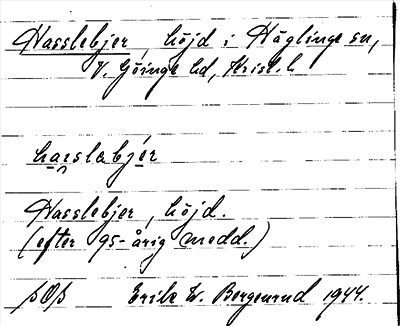 Hasslebjer, höjd i Häglinge sn,
V. Göinge hd, Krist. l.
haslabjér
Hasslebjer, höjd.
(efter 95-årig medd.)
SOS Erik W. Bergenrud 1944.